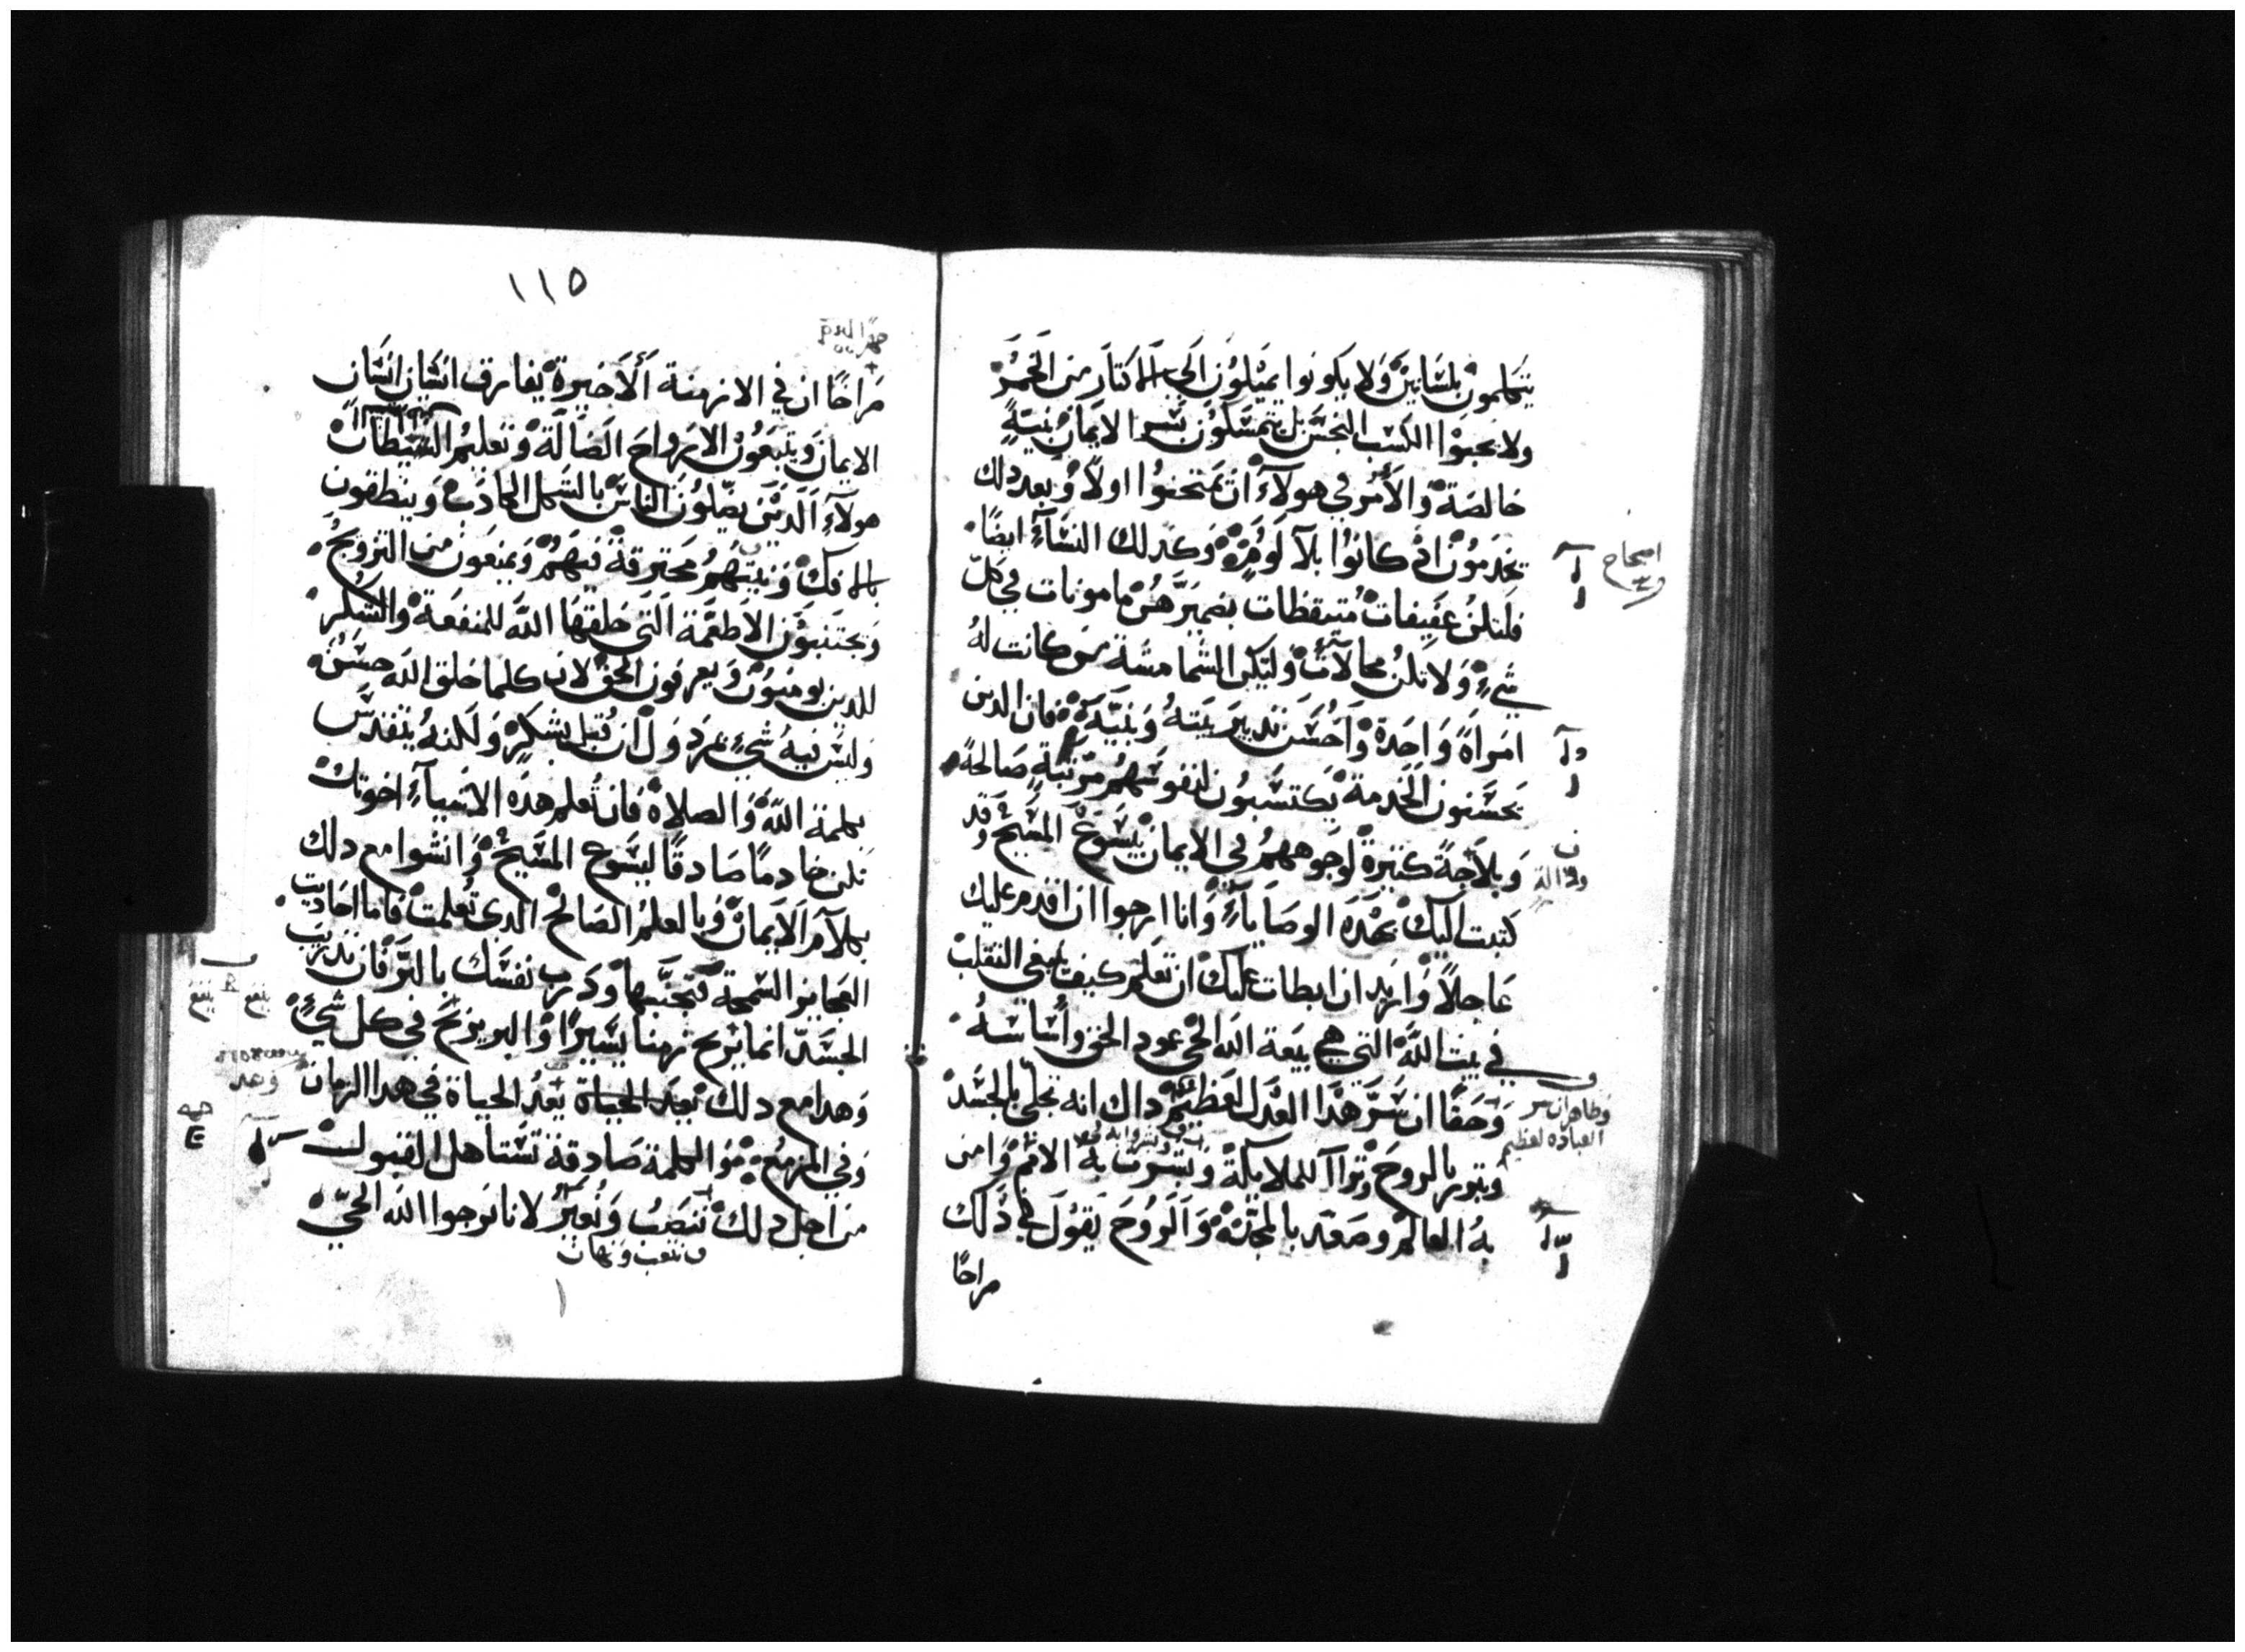 يتكلمون بلسانين ولا يكونوا يميلون الي الاكتار من الخمر
ولا يحبوا الكسب النجس بل يتمسكون بسر الايمان بنية
خالصة والأمر في هولآء ان يمتحنوا اولاً وبعد دلك
يخدمون اذ كانوا بلا لومة وكدلك النسآء ايضًا
فليكن عفيفات متيقظات بضميرهن مامونات في كل
شيء ولا يكن محالات وليكن الشمامسة من كانت له
امراة واحدة واحسن تدبير بيته وبنيه فان الدين
يحسنون الخدمة يكتسبون لنفوسهم مرتبة صالحة
وبلاجة كتيرة لوجوههم في الايمان بيسوع المسيح وقد
كتبت اليك بهده الوصايا وانا ارجوا ان اقدم عليك
عاجلاً وازيد ان ابطات عليك ان تعلم كيف ينبغي التقلب
في بيت الله التي هي بيعة الله الحي عمود الحق واساسه
وحقًا ان سر هذا العدل لعظيم داك انه تجلى بالجسد
وتبرر بالروح وتراآ للملايكة وبشرت به الامم وامن
به العالم وصعد بالمجد والروح يقول في ذلك
مراحًا
اصحاح
وظاهر ان سر
العباده لعظيم
١١٥
مراحًا ان في الازمنة الاخيرة يفارق انسان انسان
الايمان ويتبعون الارواح الضالة وتعليم الشيطان
هولاء الدين يضلون الناس بالشكل الكادب وينطقون
بالافك ونيتهم محترقة فيهم ويمنعون من التزويج
ويجتنبون الاطعمة التي خلقها الله للمنفعة والشكر
للدين يومنون ويعرفون الحق لان كلما خلق الله حسن
وليس فيه شيء مردول ان قبل بشكر ولكنه يتقدس
بكلمة الله والصلاة فان تعلم هذه الاشياء اخوتك
تكن خادمًا صادقًا ليسوع المسيح وانشوا مع دلك
بكلام الايمان وبالعلم الصالح الدي تعلمت فاما احاديت
العجايز السمجة فتجنبها ودرب نفسك بالبر فان تدريب
الجسد انما يربح زمنا يسيرًا والبر يربح في كل شيء
وهدا مع دلك بعد الحياة يعد الحياة في هدا الزمان
وفي المزمع هو الكلمة صادقة تستاهل القبول
من اجل دلك ننصب ونعير لانا نرجوا الله الحي
نتعب ونهان
وعد